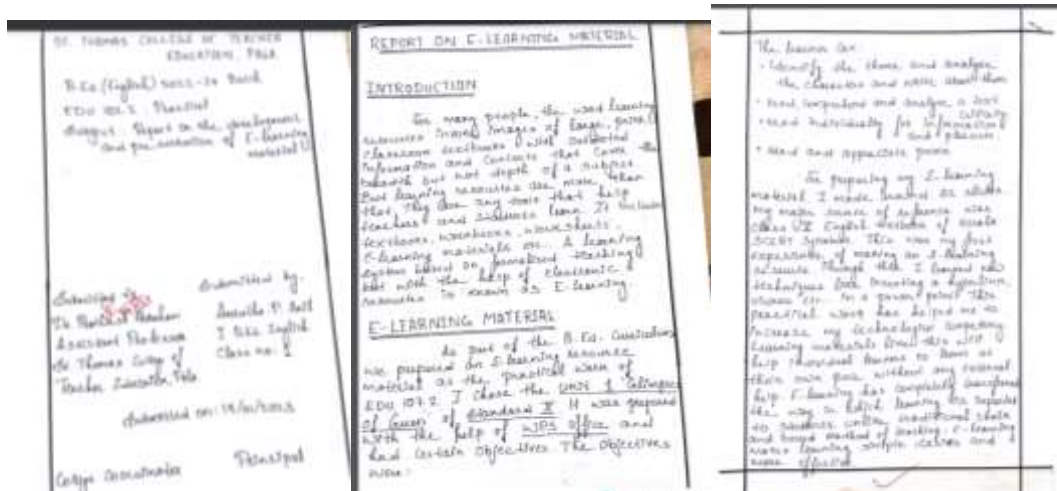 ST. THOMAS COLLEGE OF TEACHER
EDUCATION, PALA
B.Ed (English) Batch
EDU 107.2 Practical
Report on the development
and presentation of E-learning
material
Submitted to
Submitted by:
Assistant Professor
St Thomas College of
Teacher Education, Pala
I B.Ed English
Class no: 1
Submitted on:
Principal
REPORT ON E-LEARNING MATERIAL
INTRODUCTION
For many people, the word learning
resources images of large,
classroom textbooks with selected
information and contents that cover the
breadth but not depth of a subject.
But learning resources are more than
that, They are any tools that help
teachers and students learn. It includes
textbooks, workbooks, worksheets,
E-learning materials etc. A learning
system based on formalised teaching
but with the help of electronic
resources is known as E-learning
E-LEARNING MATERIAL
As part of the B.Ed. Curriculum
we prepared an E-learning resource
material as the practical work of
EDU 107.2. I chose the UNIT 1 Glimpses
of Green of Standard X. It was prepared
with the help of WPS office and
had certain objectives. The objectives
were:
The learner can
• identify the theme and analyse
the characters and write about them
• read comprehend and analyse a text
• read individually for information
and pleasure
• read and appreciate poems
For preparing my E-learning
material, I made
my major source of reference was
English textbook of Kerala
SCERT Syllabus. This was my first
experience of making an E-learning
resource. Through this I learned new
techniques like inserting a hyperlink,
etc. in a power point. This
practical work has helped me to
increase my technological competency
Learning materials like this will
help individual learners to learn at
their own pace without any external
help. E-learning has completely transformed
the way in which learning is imparted
to students unlike traditional chalk
and board method of teaching. E-learning
makes learning simple, easier and
more effective.